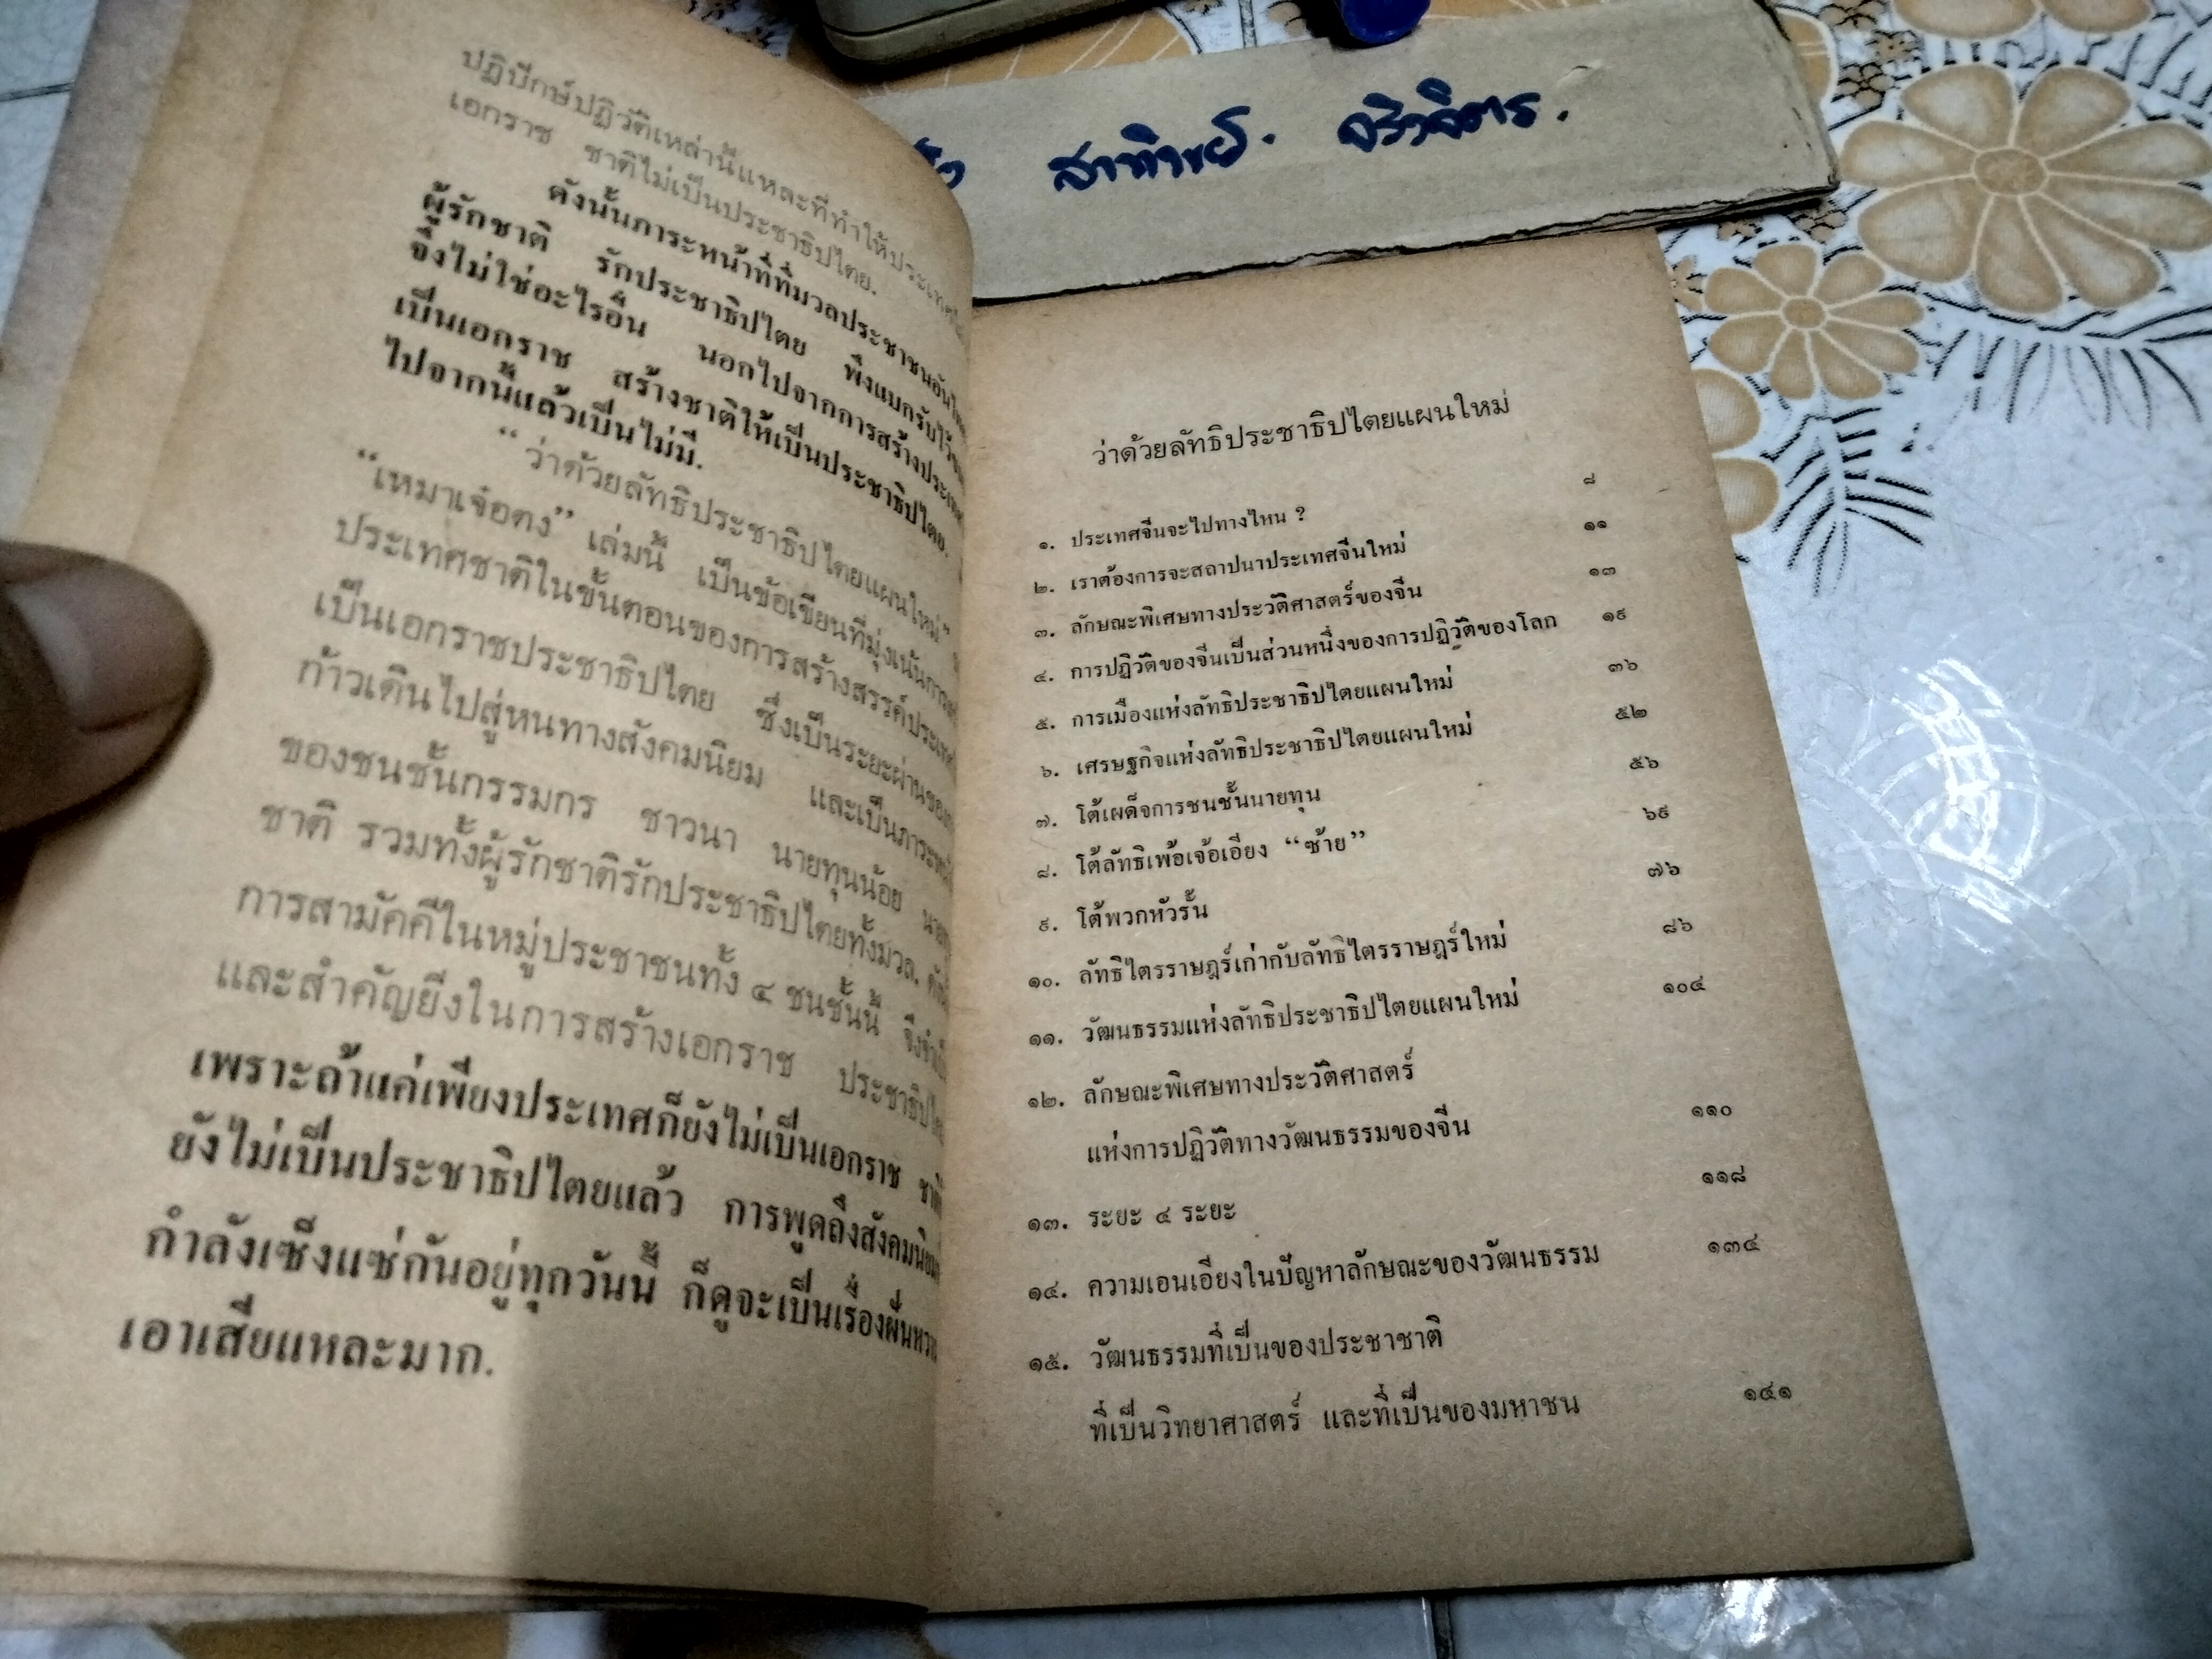 ปฏิปักษ์ปฏิวัติเหล่านี้แหละที่ทำให้ประเทศไม่
เอกราช ชาติไม่เป็นประชาธิปไตย.
ดังนั้นภาระหน้าที่ที่มวลประชาชน
ผู้รักชาติ รักประชาธิปไตย พึงแบกรับไว้
จึงไม่ใช่อะไรอื่น นอกไปจากการสร้างประเทศ
เป็นเอกราช สร้างชาติให้เป็นประชาธิปไตย.
ไปจากนี้แล้วเป็นไม่มี.
“ว่าด้วยลัทธิประชาธิปไตยแผนใหม่”
“เหมาเจ๋อตง” เล่มนี้ เป็นข้อเขียนที่มุ่งเน้น
ประเทศชาติในขั้นตอนของการสร้างสรรค์ประเทศ
เป็นเอกราชประชาธิปไตย ซึ่งเป็นระยะผ่านของ
ก้าวเดินไปสู่หนทางสังคมนิยม และเป็นภาระ
ของชนชั้นกรรมกร ชาวนา นายทุนน้อย
ชาติ รวมทั้งผู้รักชาติรักประชาธิปไตยทั้งมวล.
การสามัคคีในหมู่ประชาชนทั้ง ๔ ชนชั้นนี้
และสำคัญยิ่งในการสร้างเอกราช ประชาธิปไตย
เพราะถ้าแค่เพียงประเทศก็ยังไม่เป็นเอกราช ชาติ
ยังไม่เป็นประชาธิปไตยแล้ว การพูดถึงสังคมนิยม
กำลังเซ็งแซ่กันอยู่ทุกวันนี้ ก็ดูจะเป็นเรื่องฝันหวาน
เอาเสียแหละมาก.
ว่าด้วยลัทธิประชาธิปไตยแผนใหม่
๑. ประเทศจีนจะไปทางไหน ? ๘
๒. เราต้องการจะสถาปนาประเทศจีนใหม่ ๑๑
๓. ลักษณะพิเศษทางประวัติศาสตร์ของจีน ๑๓
๔. การปฏิวัติของจีนเป็นส่วนหนึ่งของการปฏิวัติของโลก ๑๙
๕. การเมืองแห่งลัทธิประชาธิปไตยแผนใหม่ ๓๖
๖. เศรษฐกิจแห่งลัทธิประชาธิปไตยแผนใหม่ ๕๒
๗. โต้เผด็จการชนชั้นนายทุน ๕๖
๘. โต้ลัทธิเพ้อเจ้อเอียง “ซ้าย” ๖๙
๙. โต้พวกหัวรั้น ๗๖
๑๐. ลัทธิไตรราษฎร์เก่ากับลัทธิไตรราษฎร์ใหม่ ๘๖
๑๑. วัฒนธรรมแห่งลัทธิประชาธิปไตยแผนใหม่ ๑๐๔
๑๒. ลักษณะพิเศษทางประวัติศาสตร์
แห่งการปฏิวัติทางวัฒนธรรมของจีน ๑๑๐
๑๓. ระยะ ๔ ระยะ ๑๑๘
๑๔. ความเอนเอียงในปัญหาลักษณะของวัฒนธรรม ๑๓๔
๑๕. วัฒนธรรมที่เป็นของประชาชาติ
ที่เป็นวิทยาศาสตร์ และที่เป็นของมหาชน ๑๔๑